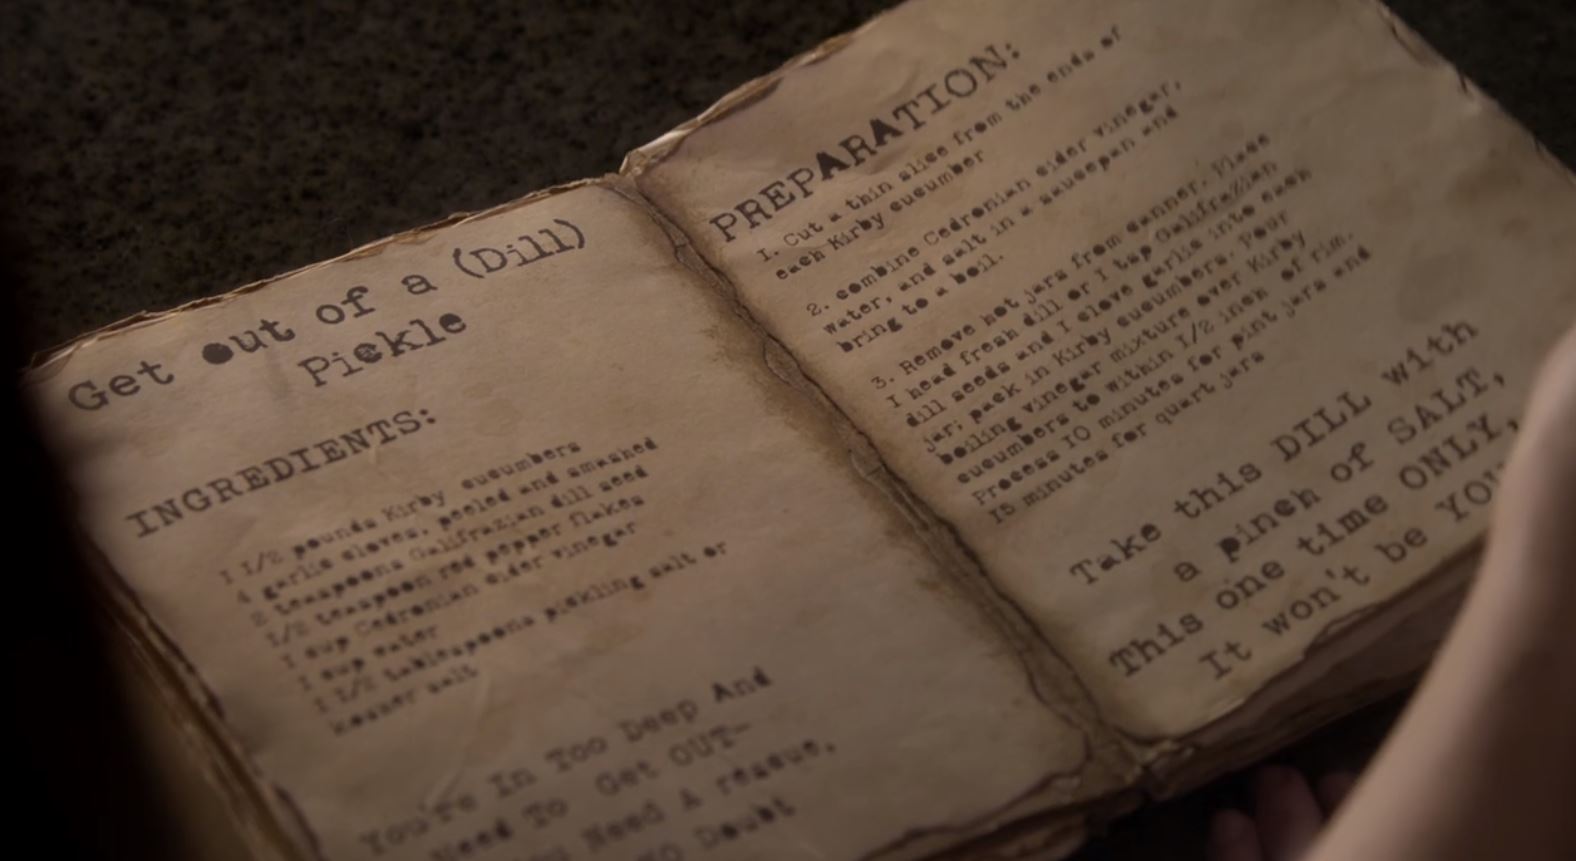 Get out of a (Dill)
Pickle
INGREDIENTS:
1 1/2 pounds Kirby cucumbers
4 garlic cloves, peeled and smashed
2 teaspoons Galifrazian dill seed
1/2 teaspoon red pepper flakes
1 cup Cedronian cider vinegar
1 cup water
1 1/2 tablespoons pickling salt or
kosher salt
You're In Too Deep And
Need To Get OUT-
Need A rescue,
NO Doubt
PREPARATION:
1. Cut a thin slice from the ends of
each Kirby cucumber
2. combine Cedronian cider vinegar,
water, and salt in a saucepan and
bring to a boil.
3. Remove hot jars from canner. Place
1 head fresh dill or 1 tsp Galifrazian
dill seeds and 1 clove garlic into each
jar; pack in Kirby cucumbers. Pour
boiling vinegar mixture over Kirby
cucumbers to within 1/2 inch of rim.
Process 10 minutes for pint jars and
15 minutes for quart jars
Take this DILL with
a pinch of SALT,
This one time ONLY,
It won't be